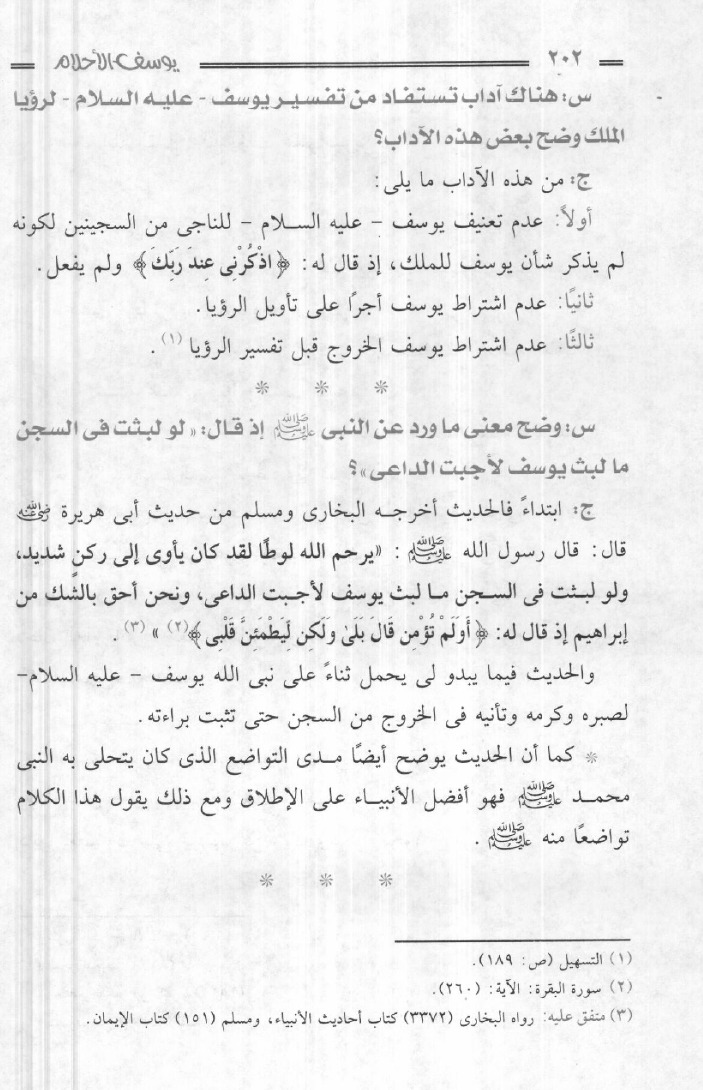 ٢٠٢ يوسف الأحلام
س: هناك آداب تستفاد من تفسير يوسف - عليه السلام - لرؤيا
الملك وضح بعض هذه الآداب؟
ج: من هذه الآداب ما يلى:
أولاً: عدم تعنيف يوسف - عليه السلام - للناجى من السجينين لكونه
لم يذكر شأن يوسف للملك، إذ قال له: ﴿اذْكُرْنِى عِندَ رَبِّكَ﴾ ولم يفعل.
ثانيًا: عدم اشتراط يوسف أجرًا على تأويل الرؤيا.
ثالثًا: عدم اشتراط يوسف الخروج قبل تفسير الرؤيا (١).
* * *
س: وضح معنى ما ورد عن النبى ﷺ إذ قال: «لو لبثت فى السجن
ما لبث يوسف لأجبت الداعى»؟
ج: ابتداءً فالحديث أخرجه البخارى ومسلم من حديث أبى هريرة رضي الله عنه
قال: قال رسول الله ﷺ: «يرحم الله لوطًا لقد كان يأوى إلى ركنٍ شديد،
ولو لبثت فى السجن ما لبث يوسف لأجبت الداعى، ونحن أحق بالشك من
إبراهيم إذ قال له: ﴿أَوَلَمْ تُؤْمِن قَالَ بَلَىٰ وَلَكِن لِّيَطْمَئِنَّ قَلْبِى﴾(٢)» (٣).
والحديث فيما يبدو لى يحمل ثناءً على نبى الله يوسف - عليه السلام-
لصبره وكرمه وتأنيه فى الخروج من السجن حتى تثبت براءته.
* كما أن الحديث يوضح أيضًا مدى التواضع الذى كان يتحلى به النبى
محمد ﷺ فهو أفضل الأنبياء على الإطلاق ومع ذلك يقول هذا الكلام
تواضعًا منه ﷺ.
* * *
(١) التسهيل (ص: ١٨٩).
(٢) سورة البقرة: الآية: (٢٦٠).
(٣) متفق عليه: رواه البخارى (٣٣٧٢) كتاب أحاديث الأنبياء، ومسلم (١٥١) كتاب الإيمان.